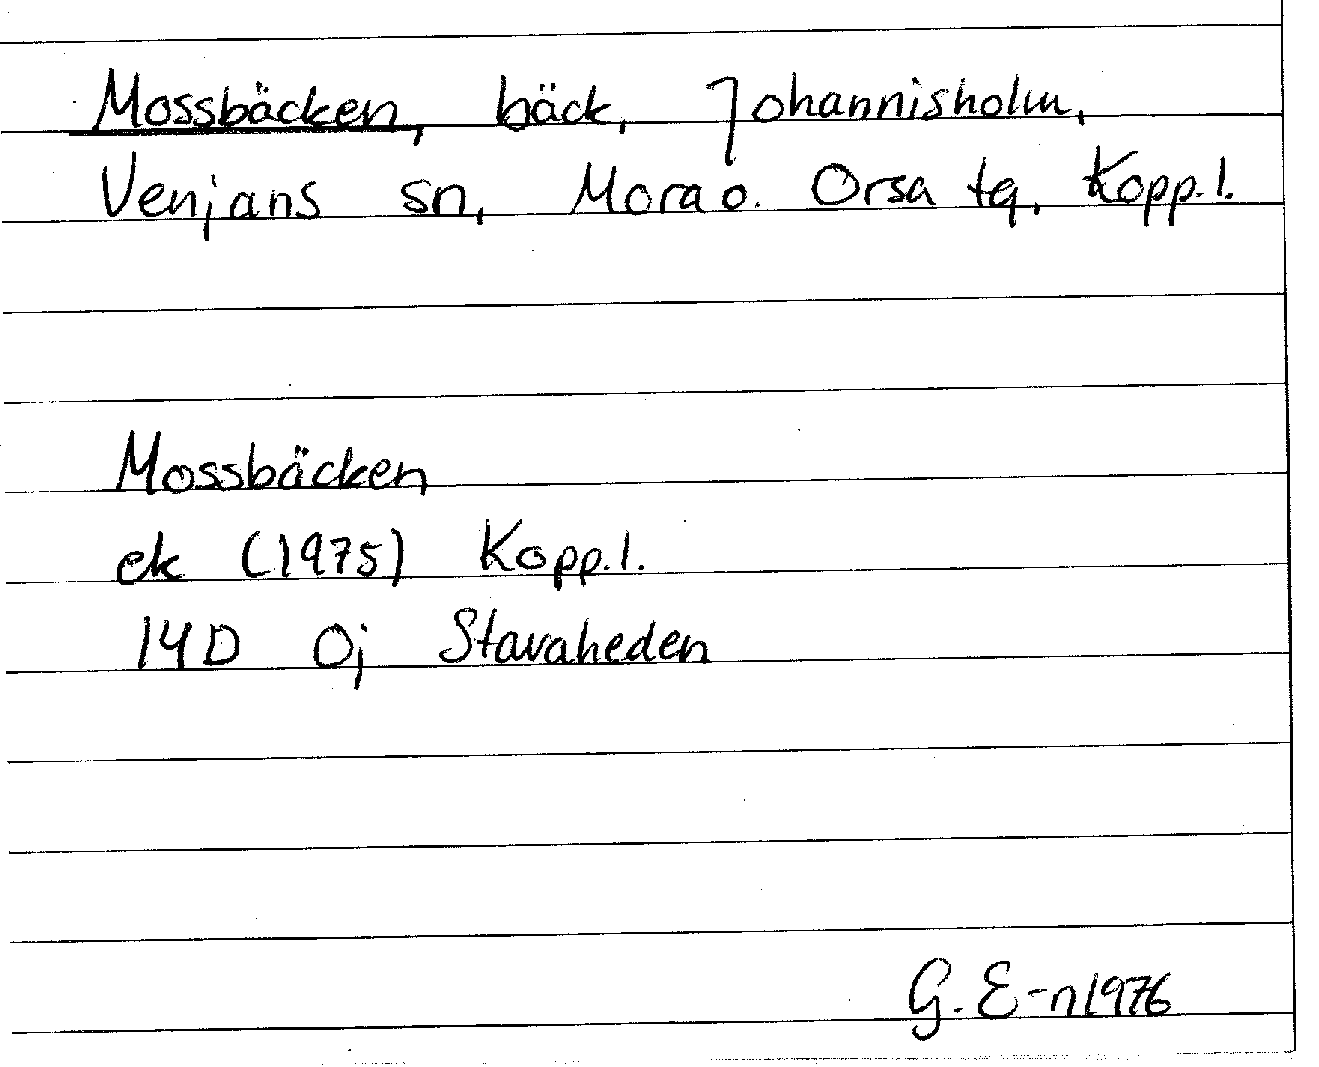 Mossbäcken, bäck, Johannisholm,
Venjans sn, Mora o. Orsa tg, Kopp.l.
Mossbäcken
ek (1975) Kopp.l.
14D 0j Stavaheden
G. E-n 1976